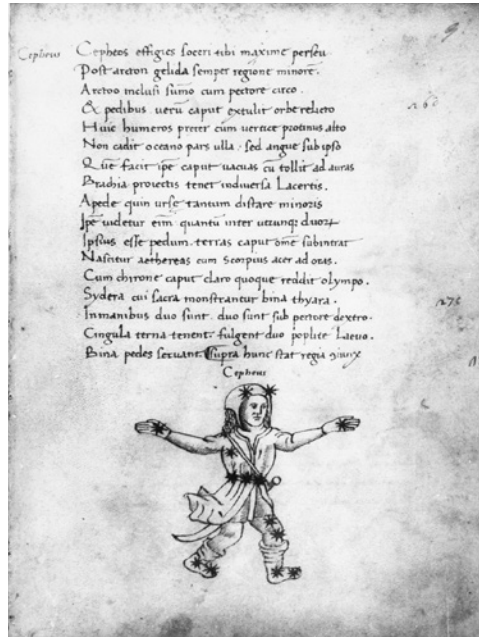 Cepheus
Cepheos effigies soceri tibi maxime perseu
Post arcton gelida semper regione minorē.
Arctoo inclusi sūmo cum pectore circo.
Ex pedibus verū caput extulit orbe relicto
Huic humeros preter cum vertice protinus alto
Non cadit oceano pars ulla. sed angue sub ipso
Quē facit ipē caput vacuas cū tollit ad auras
Brachia proiectis tenet indiversa Lacertis.
Apede quin urse tantum distare minoris
Ipē videtur eīm quantū inter utrunq; duorꝝ
Ipsius esse pedum. terras caput omē subintrat
Nascitur aethereas cum Scorpius acer ad oras.
Cum chirone caput claro quoque reddit olympo.
Sydera cui sacra monstrantur bina thyara.
In manibus duo sunt. duo sunt sub pectore dextro.
Cingula terna tenent. fulgent duo poplite Laevo.
Bina pedes servant. supra hunc stat regia
Cepheus
9
260
275